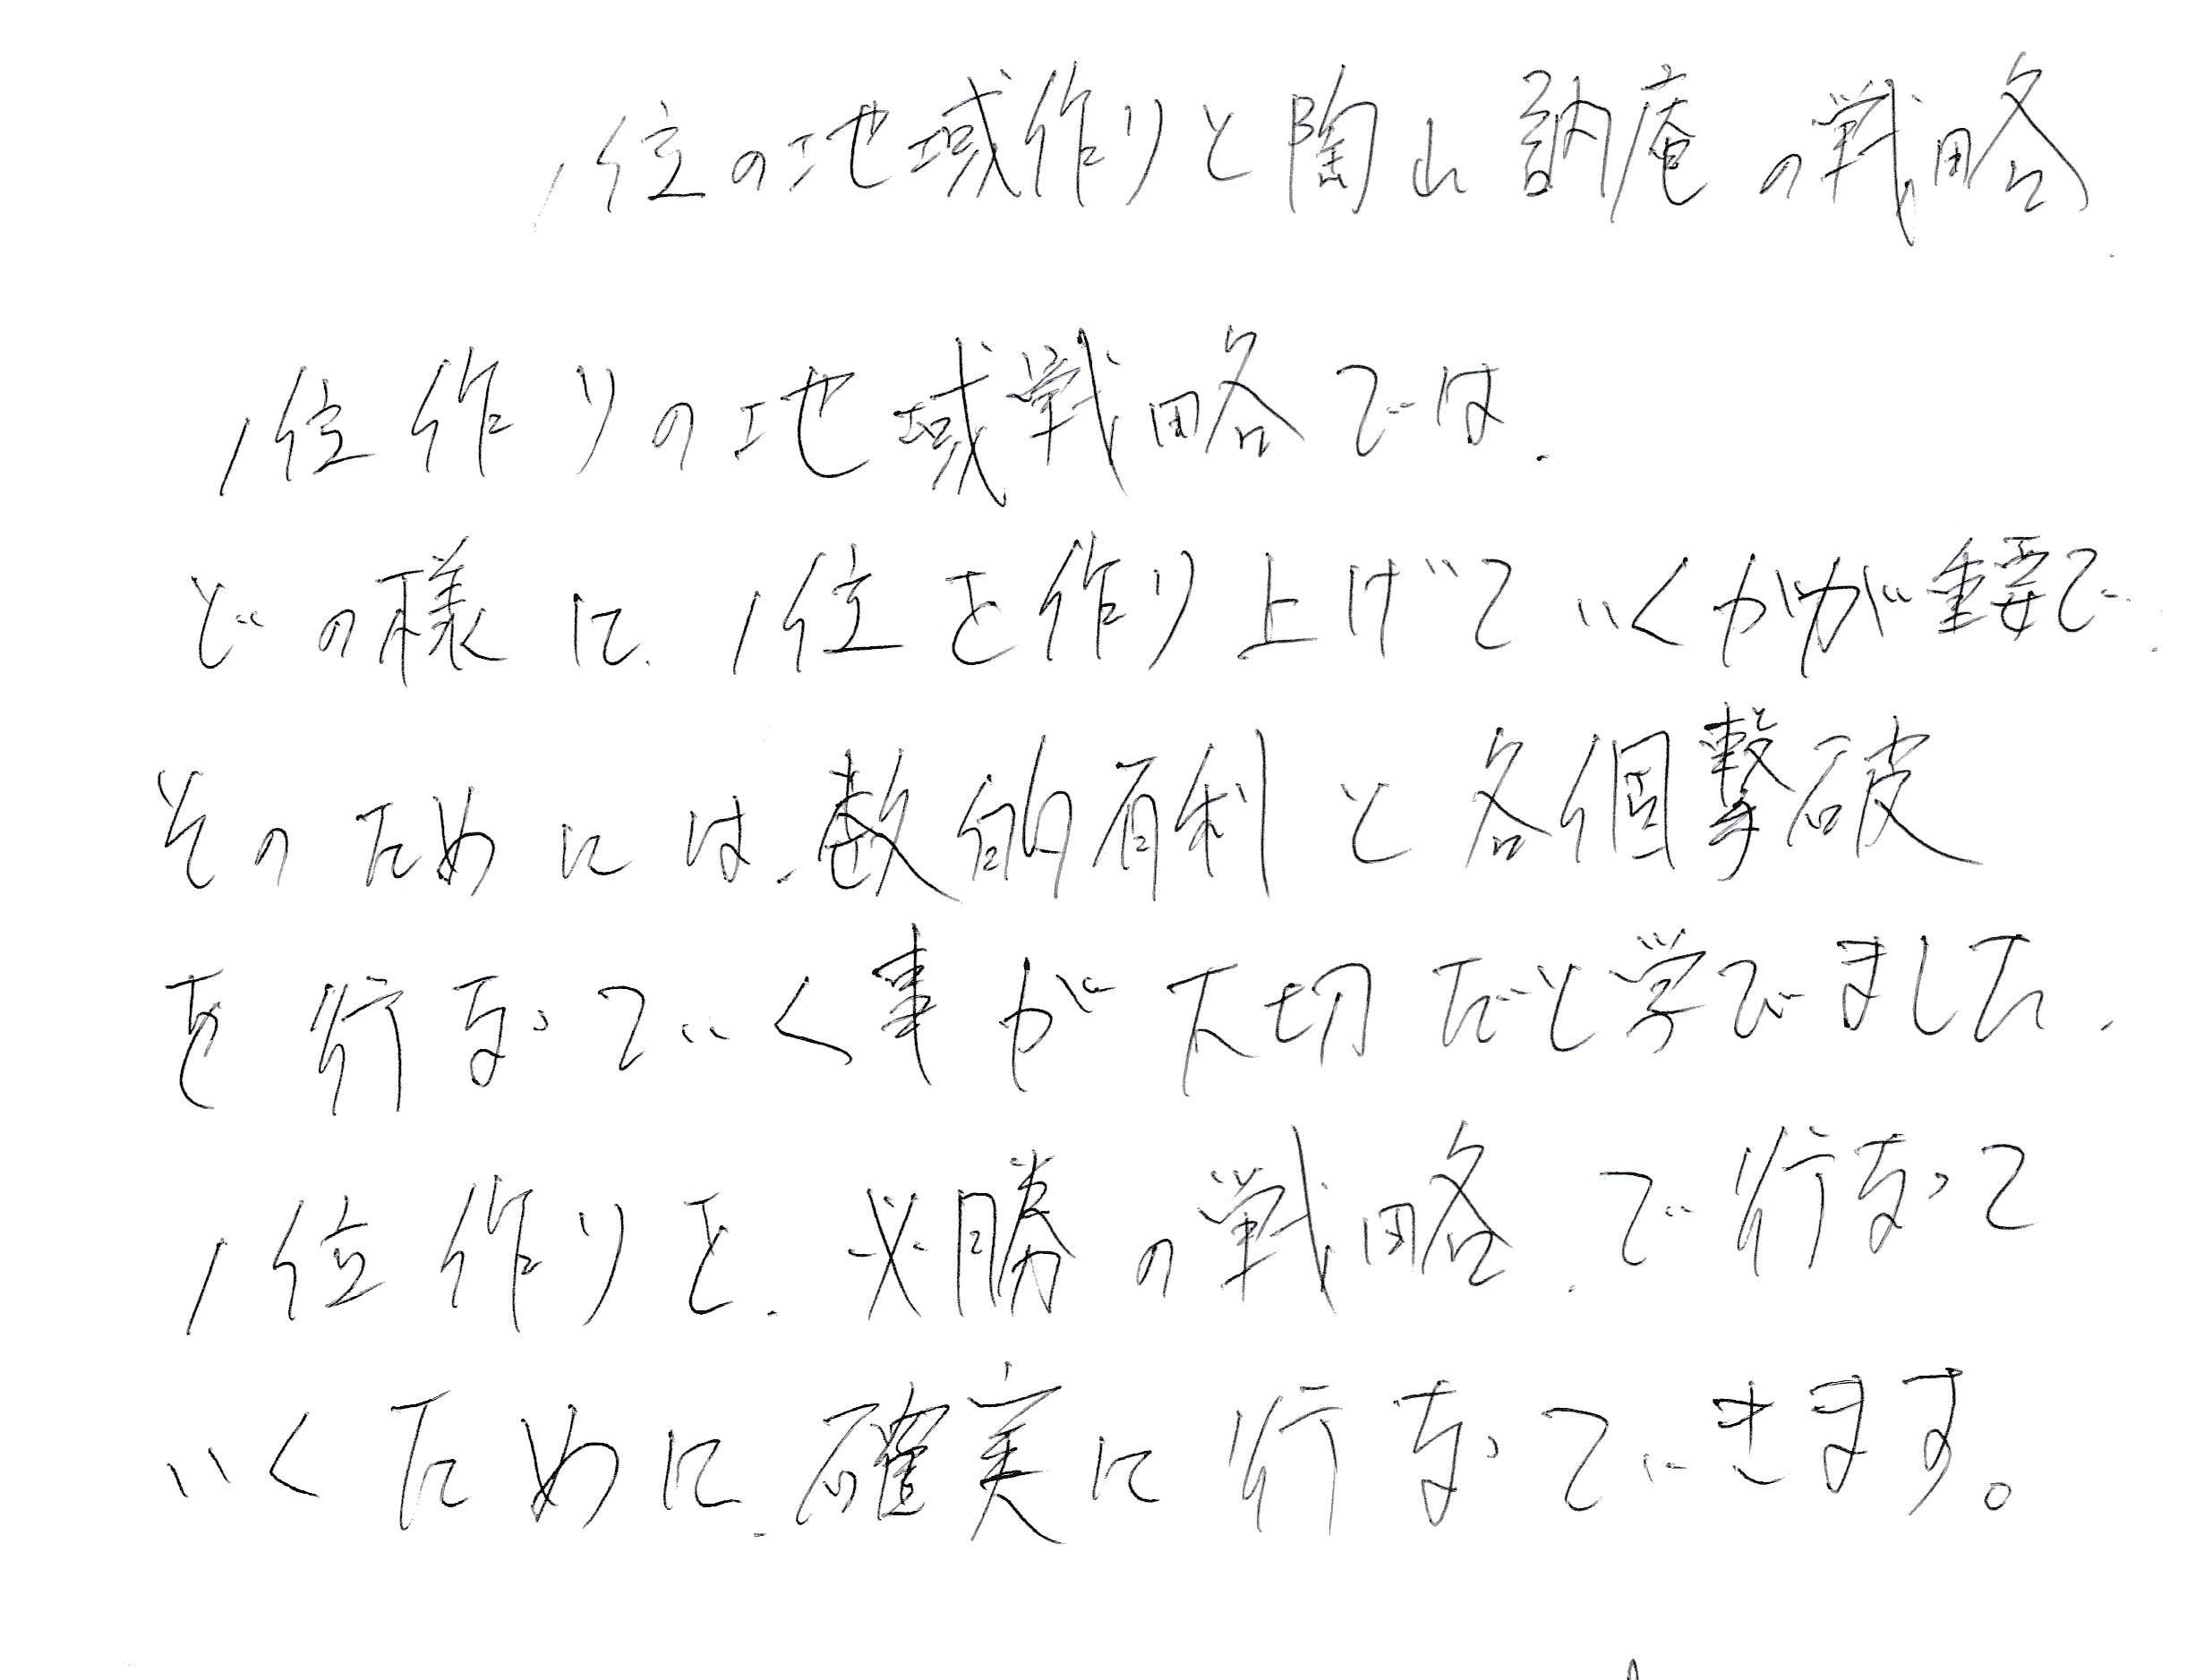 1位の地域作りと陶山訥庵の戦略
1位作りの地域戦略では、
どの様に、1位を作り上げていくかが重要で、
そのためには、数的有利と各個撃破
を行なっていく事が大切だと学びました、
1位作りを、必勝の戦略、で行なって
いくために、確実に行なっていきます。